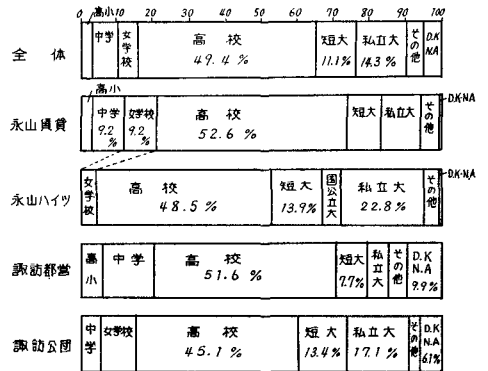 0 10 20 30 40 50 60 70 80 90 100
高小
全体 中学 女学校 高校 49.4% 短大 11.1% 私立大 14.3% その他 D.K N.A
高小 D.K・N.A
永山賃貸 中学 9.2% 女学校 9.2% 高校 52.6% 短大 私立大 その他
D.K・N.A
永山ハイツ 女学校 高校 48.5% 短大 13.9% 国公立大 私立大 22.8% その他
諏訪都営 高小 中学 高校 51.6% 短大 7.7% 私立大 その他 D.K N.A 9.9%
諏訪公団 中学 女学校 高校 45.1% 短大 13.4% 私立大 17.1% その他 D.K N.A 6.1%